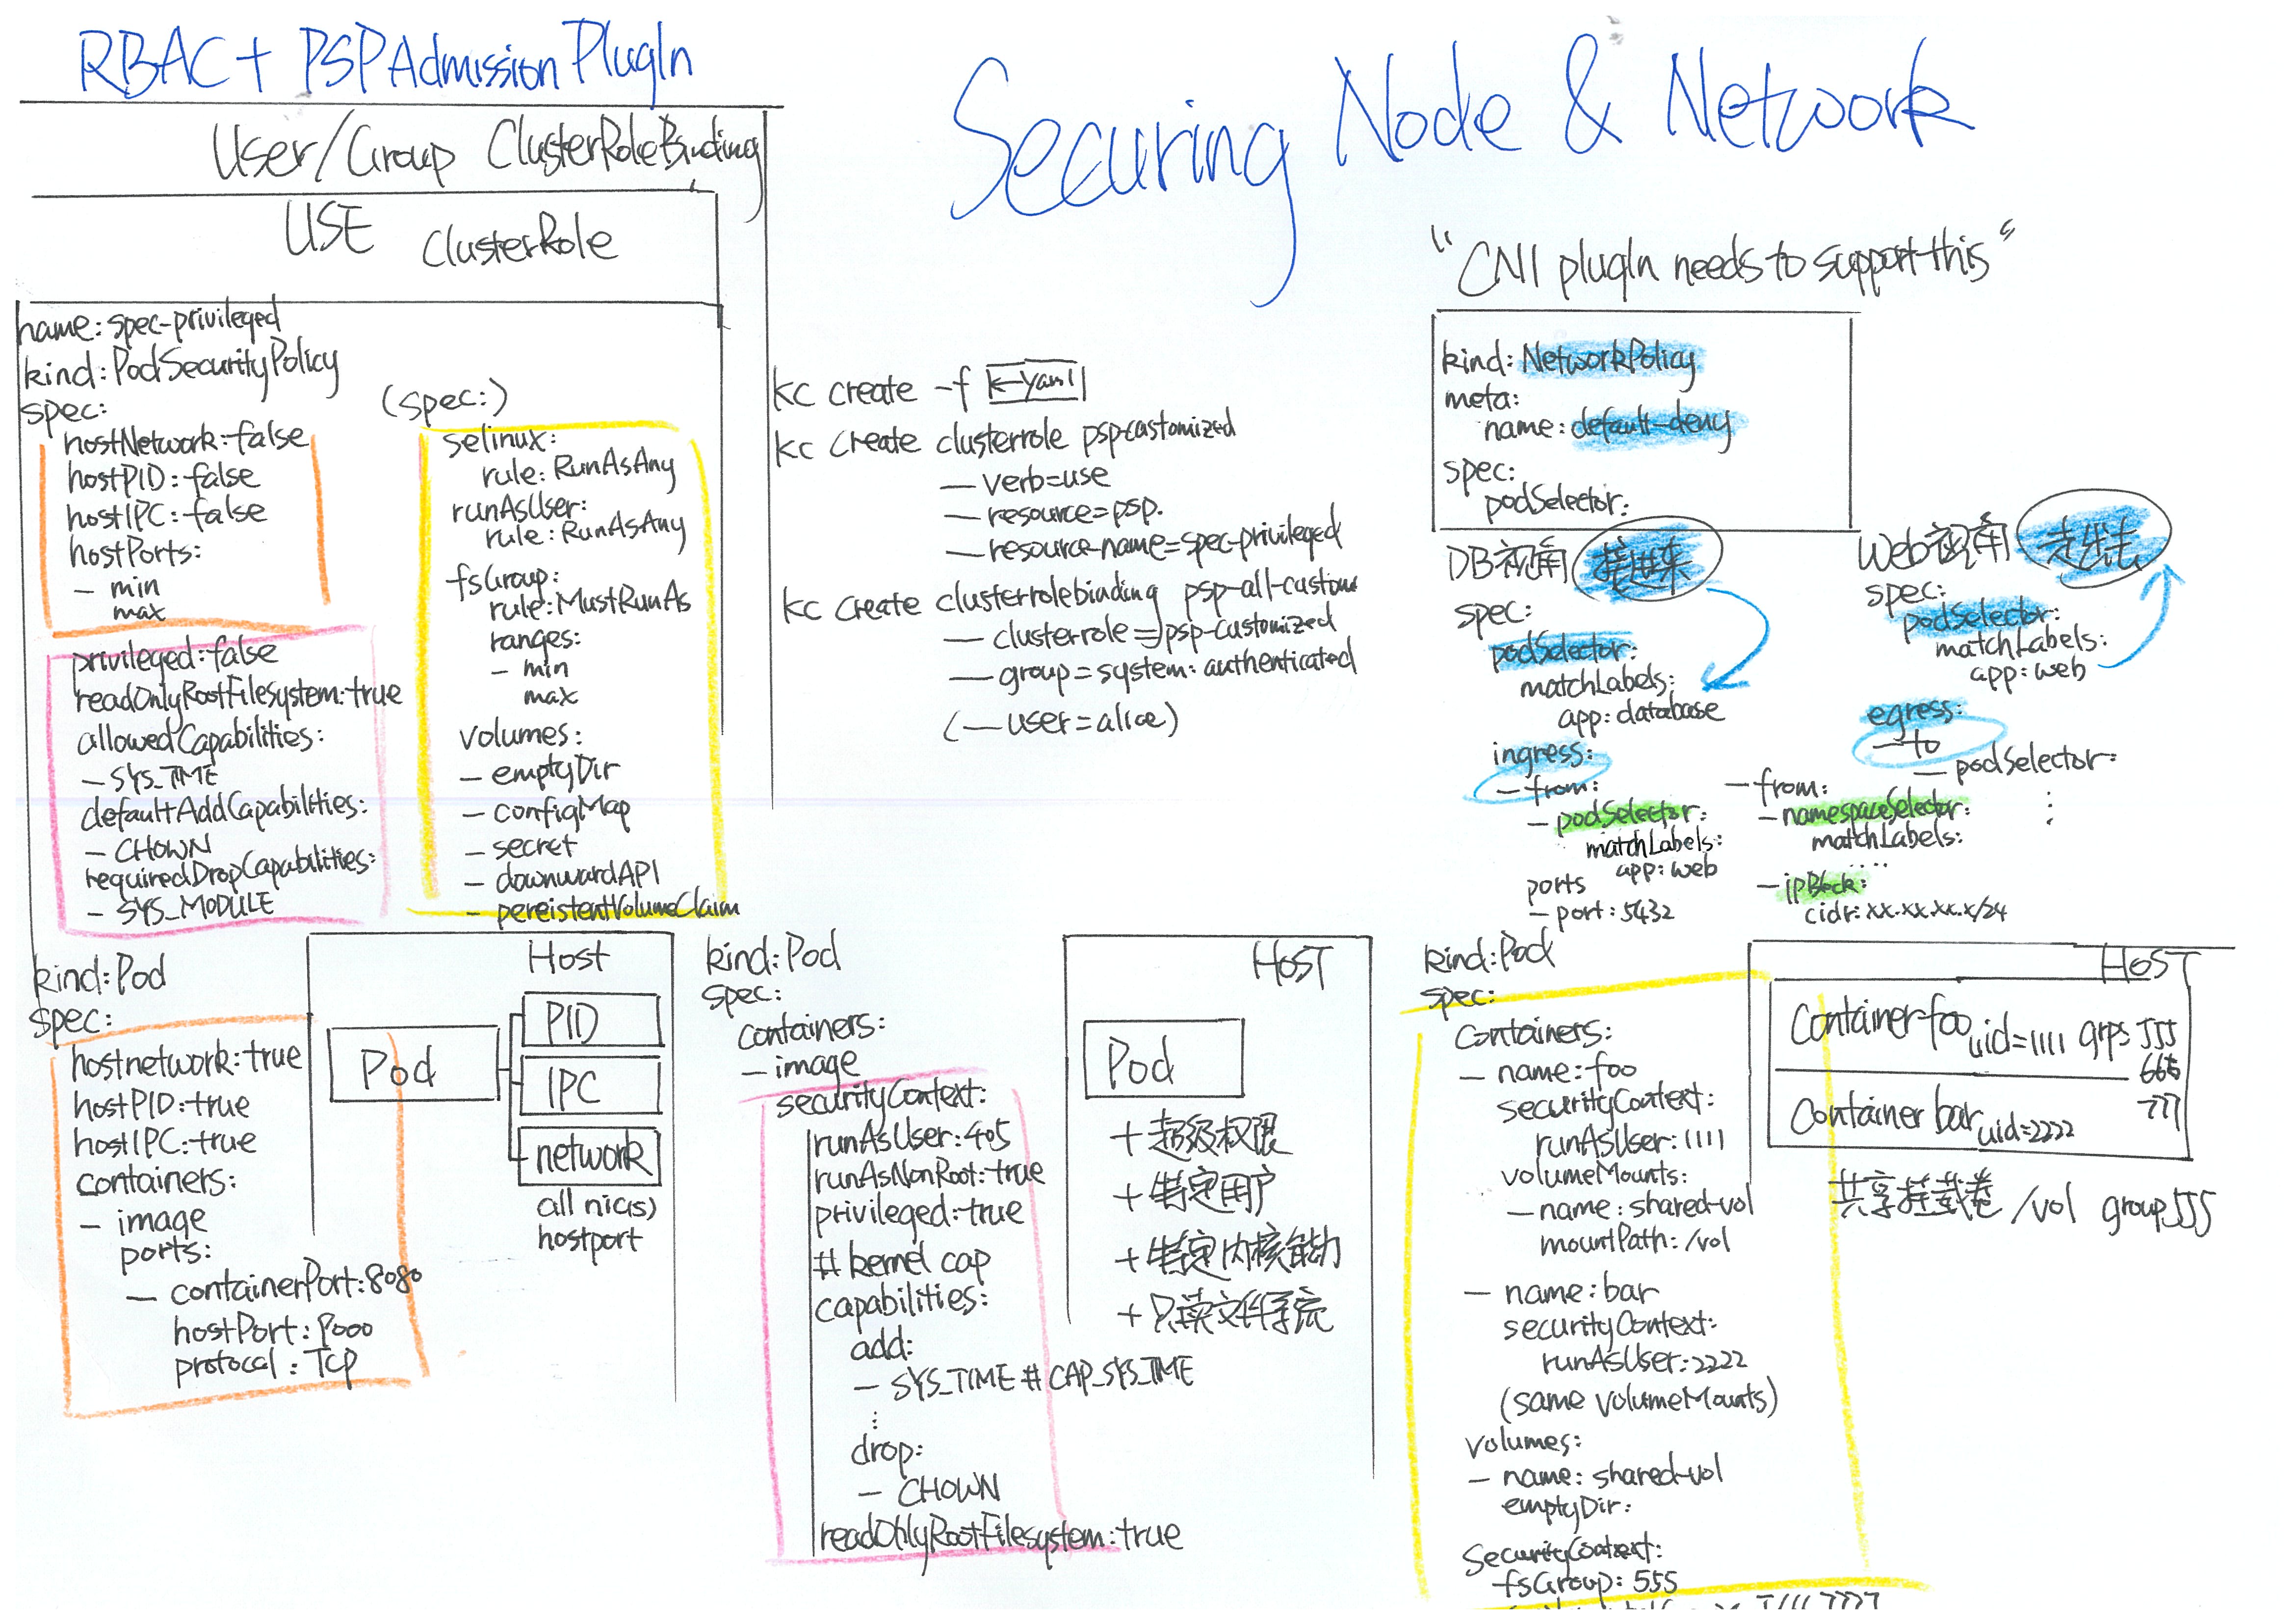 RBAC + PSPAdmissionPlugIn
User/Group ClusterRoleBinding
USE ClusterRole
name: spec-privileged
kind: PodSecurityPolicy
spec:
hostNetwork: false
hostPID: false
hostIPC: false
hostPorts:
- min
max
privileged: false
readOnlyRootFilesystem: true
allowedCapabilities:
- SYS_TIME
defaultAddCapabilities:
- CHOWN
requiredDropCapabilities:
- SYS_MODULE
(spec:)
selinux:
rule: RunAsAny
runAsUser:
rule: RunAsAny
fsGroup:
rule: MustRunAs
ranges:
- min
max
volumes:
- emptyDir
- configMap
- secret
- downwardAPI
- pereistentVolumeClaim
Securing Node & Network
kc create -f ←yaml
kc create clusterrole psp-customized
— verb=use
— resource=psp.
— resource-name=spec-privileged
kc create clusterrolebinding psp-all-custom
— clusterrole=psp-customized
— group=system:authenticated
(— user=alice)
"CNI plugIn needs to support this"
kind: NetworkPolicy
meta:
name: default-deny
spec:
podSelector:
DB视角 接进来
spec:
podSelector:
matchLabels:
app: database
ingress:
- from:
- podSelector:
matchLabels:
app: web
ports
- port: 5432
- from:
- namespaceSelector:
matchLabels:
....
- ipBlock:
cidr: xx.xx.xx.x/24
Web视角 走出去
spec:
podSelector:
matchLabels:
app: web
egress:
- to
- podSelector:
⋮
kind: Pod
spec:
hostnetwork: true
hostPID: true
hostIPC: true
containers:
- image
ports:
- containerPort: 8080
hostPort: 9000
protocal: Tcp
Host
Pod
PID
IPC
network
all nic(s)
hostport
kind: Pod
spec:
containers:
- image
securityContext:
runAsUser: 405
runAsNonRoot: true
privileged: true
# kernel cap
capabilities:
add:
- SYS_TIME # CAP_SYS_TIME
⋮
drop:
- CHOWN
readOnlyRootFilesystem: true
HOST
Pod
+ 超级权限
+ 特定用户
+ 特定内核能力
+ 只读文件系统
kind: Pod
spec:
containers:
- name: foo
securityContext:
runAsUser: 1111
volumeMounts:
- name: shared-vol
mountPath: /vol
- name: bar
securityContext:
runAsUser: 2222
(same volumeMounts)
volumes:
- name: shared-vol
emptyDir:
securityContext:
fsGroup: 555
HOST
Container foo uid=1111 grps 555
666
Container bar uid=2222 777
共享挂载卷 /vol group 555